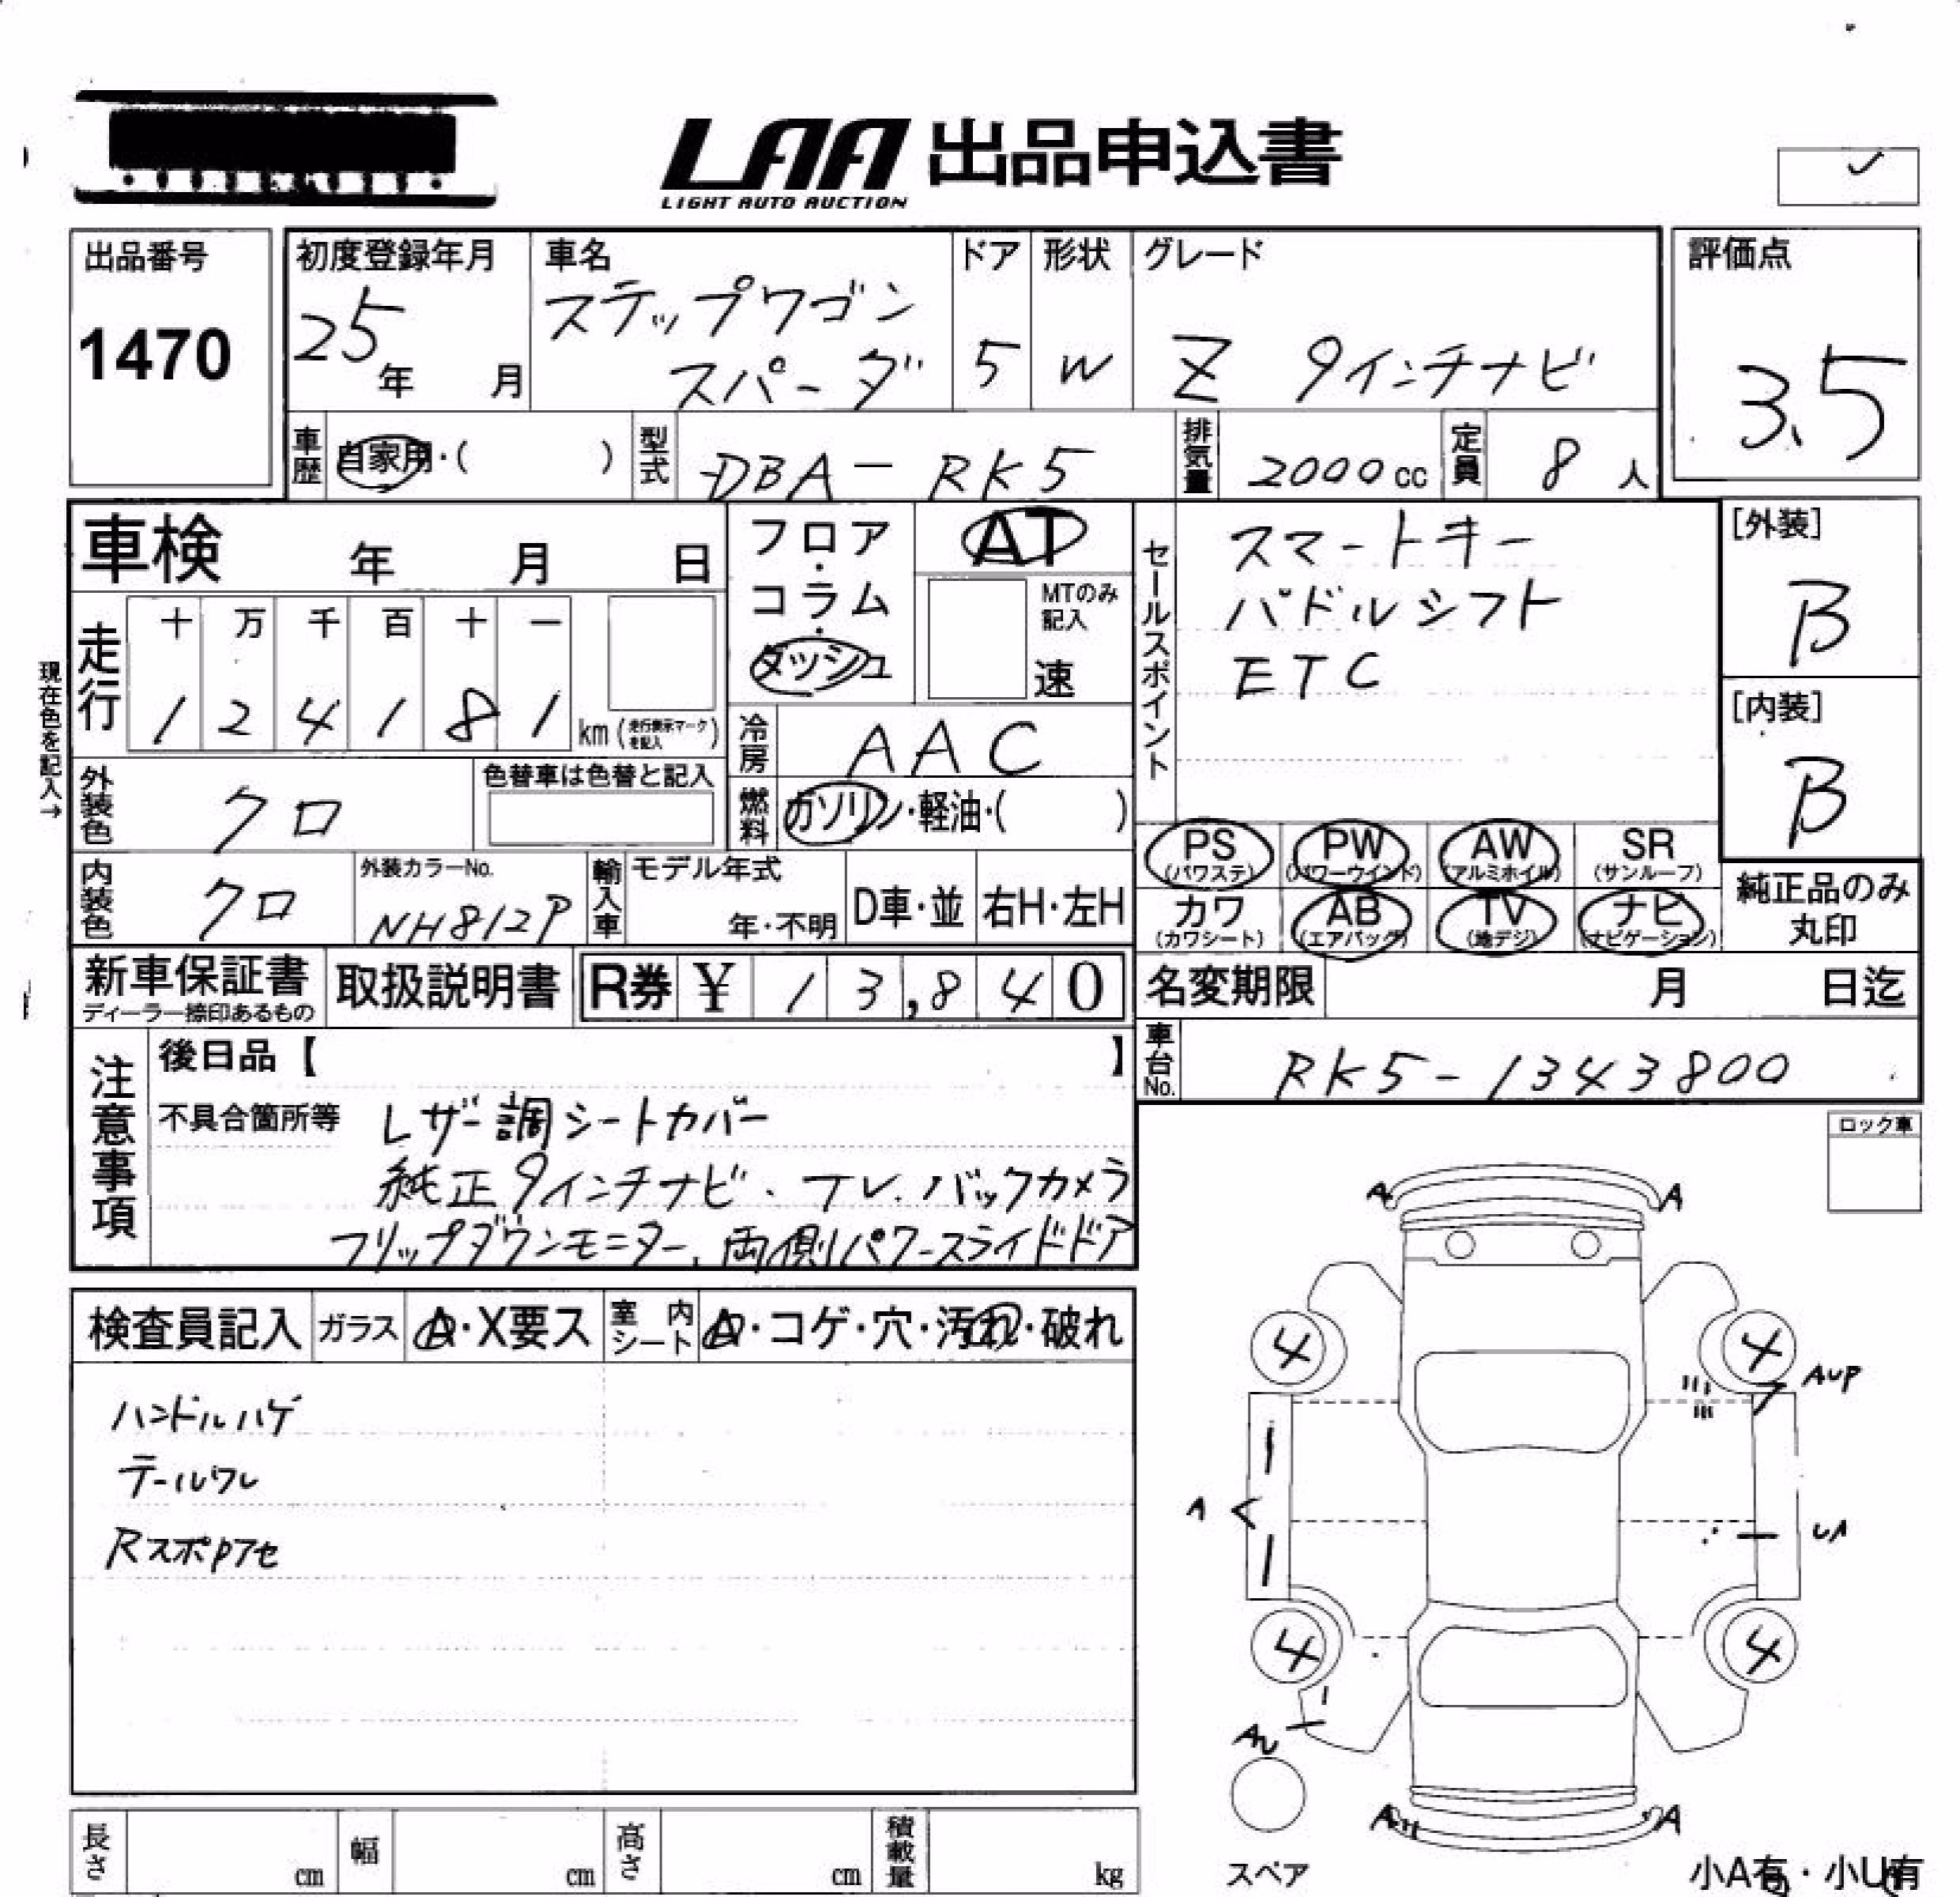 LAA 出品申込書
LIGHT AUTO AUCTION
出品番号
1470
初度登録年月
25年 月
車名
ステップワゴン
スパーダ
ドア
5
形状
W
グレード
Z 9インチナビ
評価点
3.5
車歴
自家用・( )
型式
DBA-RK5
排気量
2000cc
定員
8人
車検 年 月 日
フロア・コラム・ダッシュ
AT
MTのみ記入
速
セールスポイント
スマートキー
パドルシフト
ETC
[外装]
B
[内装]
B
現在色を記入→
走行
十 万 千 百 十 一
1 2 4 1 8 1 km (走行表示マークを記入)
冷房
AAC
外装色
クロ
色替車は色替と記入
燃料
ガソリン・軽油・( )
PS (パワステ)
PW (パワーウインド)
AW (アルミホイル)
SR (サンルーフ)
カワ (カワシート)
AB (エアバッグ)
TV (地デジ)
ナビ (ナビゲーション)
純正品のみ
丸印
内装色
クロ
外装カラーNo.
NH812P
輸入車
モデル年式
年・不明
D車・並
右H・左H
新車保証書
ディーラー捺印あるもの
取扱説明書
R券 ¥ 13,840
名変期限 月 日迄
車台No.
RK5-1343800
注意事項
後日品【 】
不具合箇所等
レザー調シートカバー
純正9インチナビ、TV、バックカメラ
フリップダウンモニター、両側パワースライドドア
ロック車
検査員記入
ガラス
A・X要ス
室内シート
A・コゲ・穴・汚れ・破れ
ハンドルハゲ
テールワレ
RスポPアセ
A A
4 4
AUP
A
UA
4 4
AU
A A
スペア
長さ cm
幅 cm
高さ cm
積載量 kg
小A有・小U有